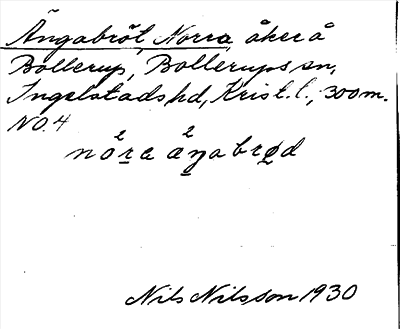 Ängabröt, Norra, åker å
Bollerup, Bollerups sn,
Ingelstads hd, Krist. l., 300 m.
NO. 4
nåra äŋabrød
Nils Nilsson 1930